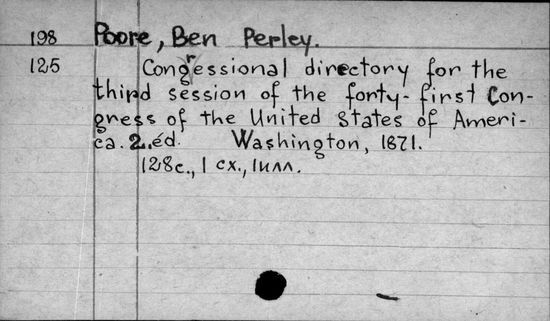 198 Poore, Ben Perley.
125 Congressional directory for the
third session of the forty-first Con-
gress of the United States of Ameri-
ca. 2.éd. Washington, 1871.
128c., 1 cx., 1илл.